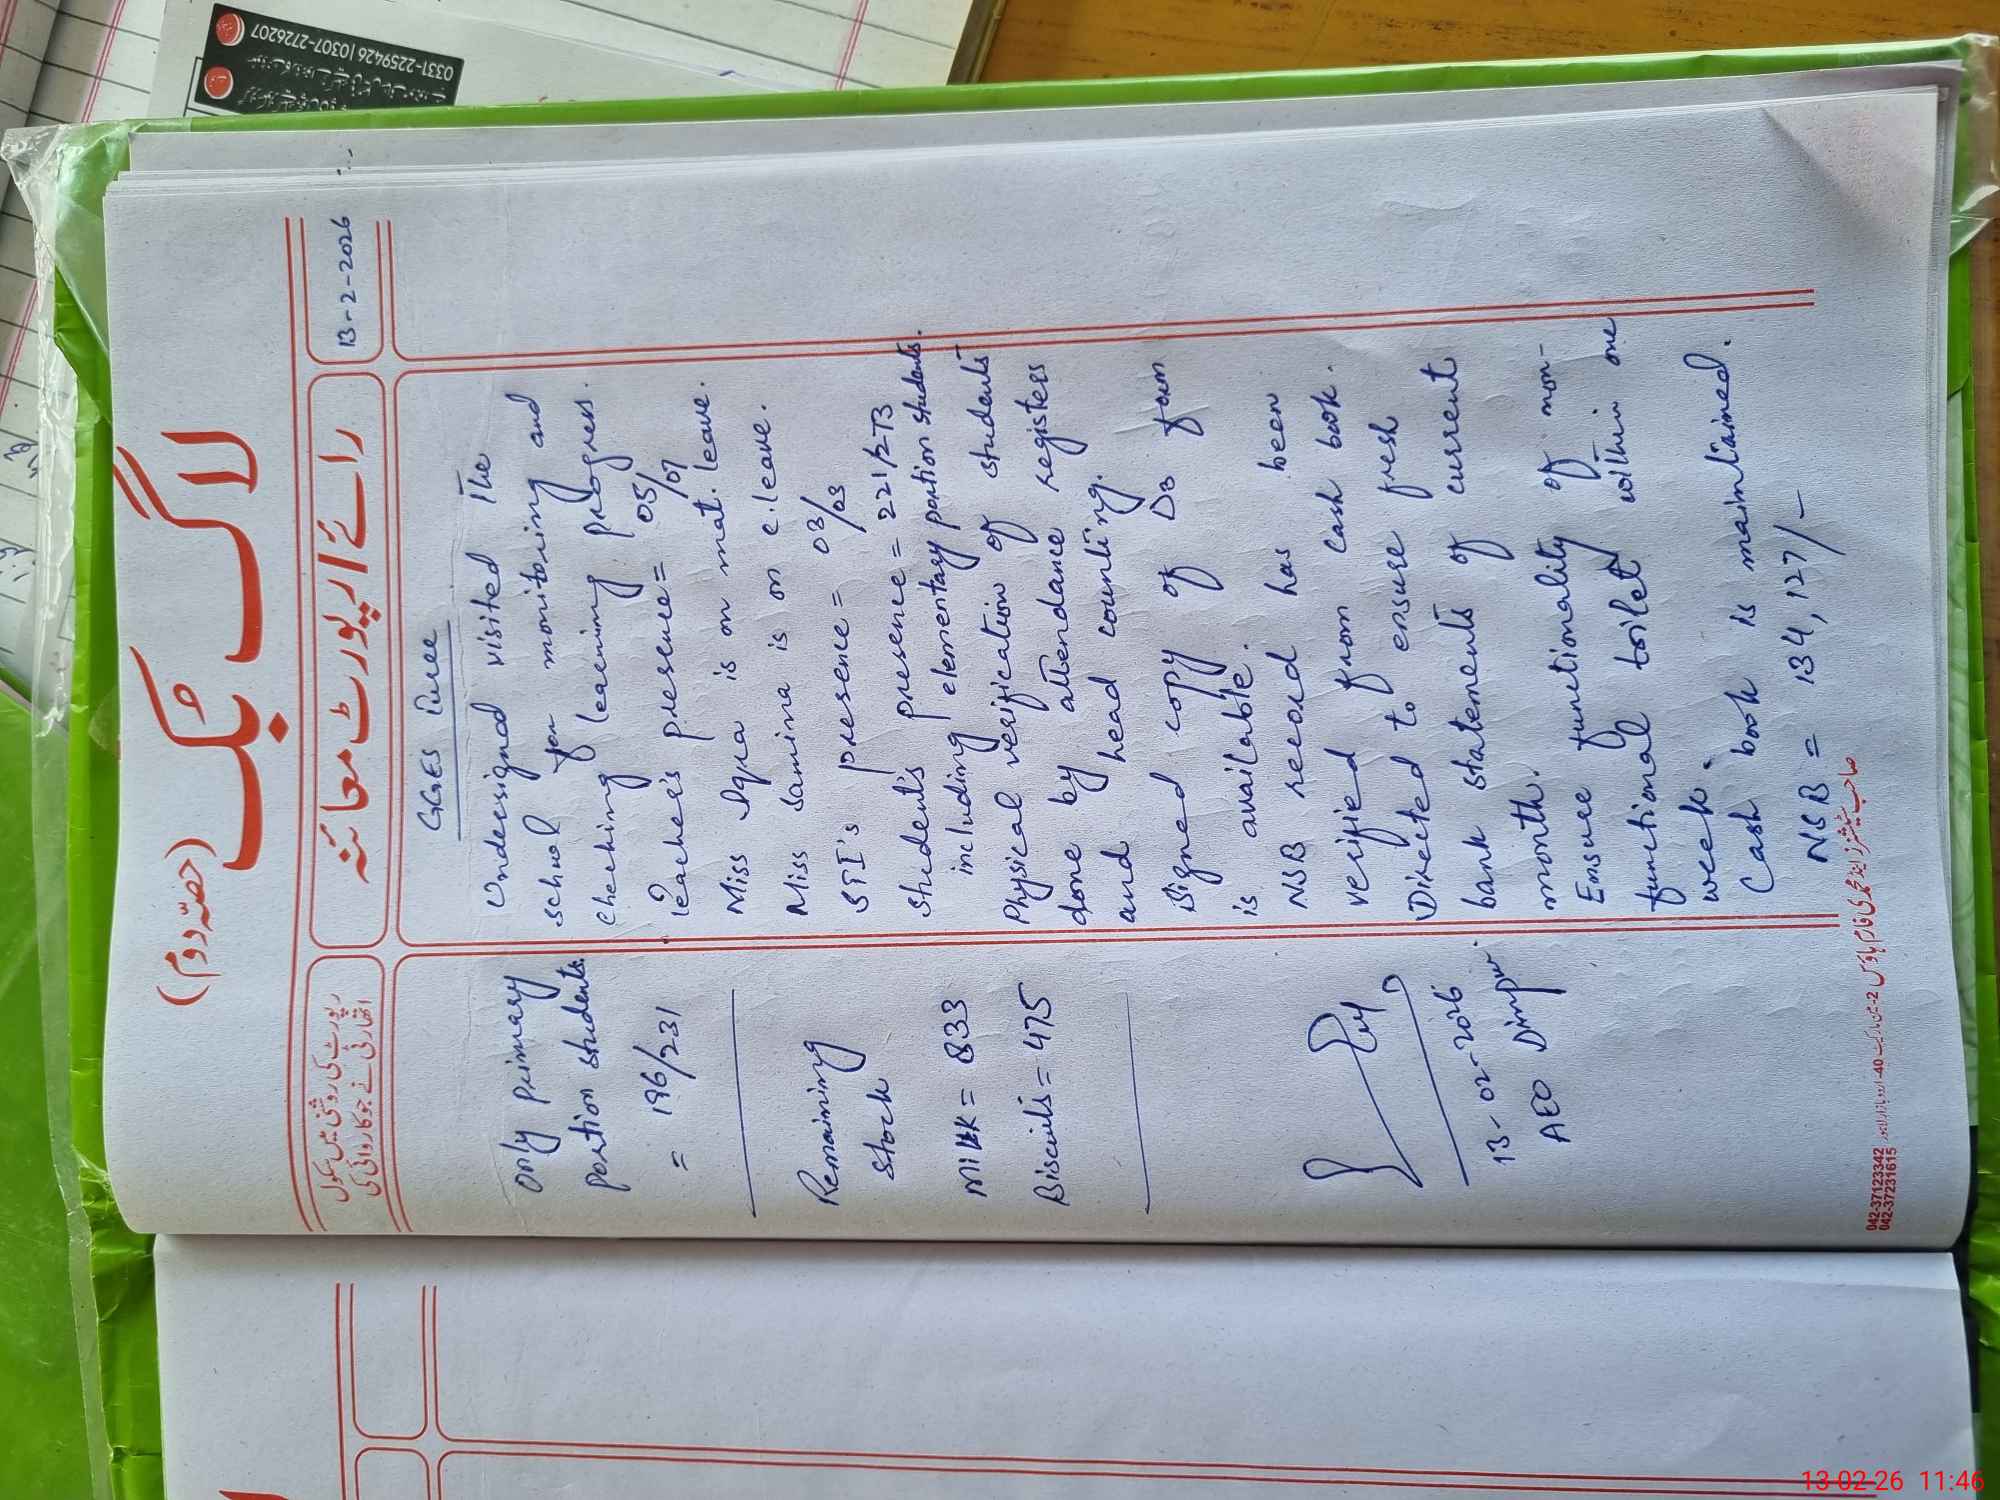 0331-2259426 | 0307-2726207
(حصّہ دوم)
لاگ بُک
رپورٹ کی روشنی میں سکول
اتھارٹی نے جو کاروائی کی
رائے / رپورٹ معائنہ
13-2-2026
GGES
Undersigned visited the
school for monitoring and
checking learning progress.
Teacher's presence = 05/07
Miss Iqra is on mat. leave.
Miss Samina is on c. leave.
STI's presence = 03/03
Student's presence = 221/273
including elementary portion students.
Physical verification of students
done by attendance registers
and head counting.
Signed copy of D3 form
is available.
NSB record has been
verified from cash book.
Directed to ensure fresh
bank statements of current
month.
Ensure functionality of non-
functional toilet within one
week.
Cash book is maintained.
NSB = 134,127/-
only primary
portion students.
= 196/231
Remaining
stock
Milk = 833
Biscuits = 475
13-02-2026
AEO
042-37123342
042-37231615
13-02-26 11:46